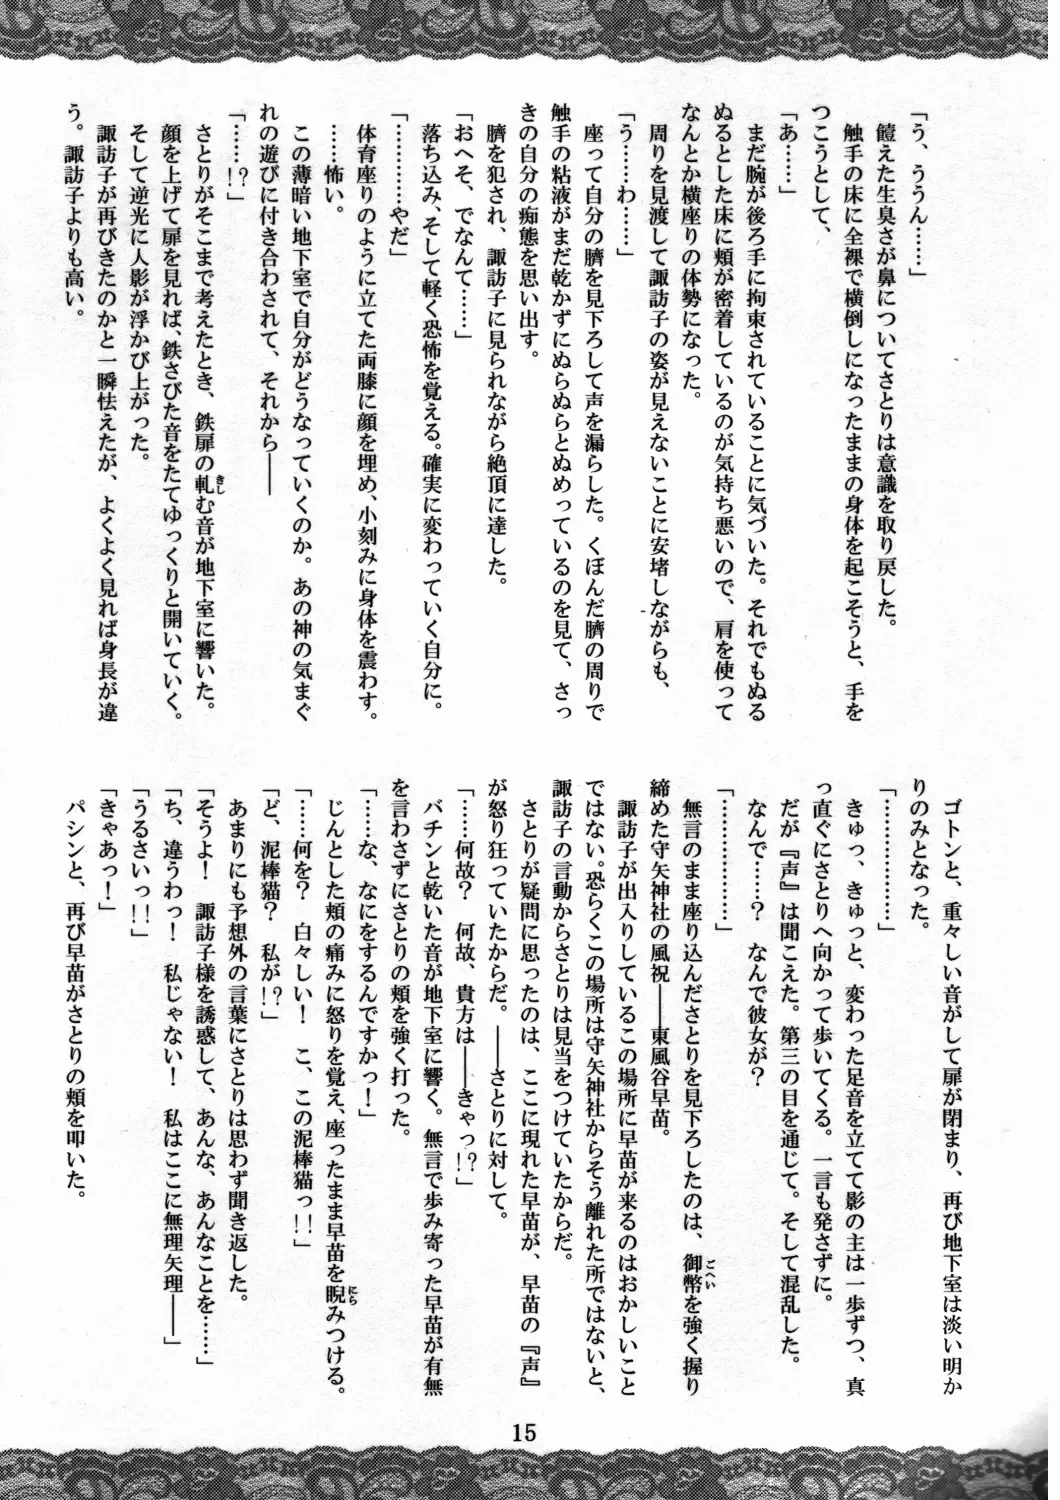 「う、ううん……」
　饐えた生臭さが鼻についてさとりは意識を取り戻した。
　触手の床に全裸で横倒しになったままの身体を起こそうと、手を
つこうとして、
「あ……」
　まだ腕が後ろ手に拘束されていることに気づいた。それでもぬる
ぬるとした床に頬が密着しているのが気持ち悪いので、肩を使って
なんとか横座りの体勢になった。
　周りを見渡して諏訪子の姿が見えないことに安堵しながらも、
「う……わ……」
　座って自分の臍を見下ろして声を漏らした。くぼんだ臍の周りで
触手の粘液がまだ乾かずにぬらぬらとぬめっているのを見て、さっ
きの自分の痴態を思い出す。
　臍を犯され、諏訪子に見られながら絶頂に達した。
「おへそ、でなんて……」
　落ち込み、そして軽く恐怖を覚える。確実に変わっていく自分に。
「…………やだ」
　体育座りのように立てた両膝に顔を埋め、小刻みに身体を震わす。
　……怖い。
　この薄暗い地下室で自分がどうなっていくのか。あの神の気まぐ
れの遊びに付き合わされて、それから――
「……!?」
　さとりがそこまで考えたとき、鉄扉の軋きしむ音が地下室に響いた。
　顔を上げて扉を見れば、鉄さびた音をたてゆっくりと開いていく。
　そして逆光に人影が浮かび上がった。
　諏訪子が再びきたのかと一瞬怯えたが、よくよく見れば身長が違
う。諏訪子よりも高い。
　ゴトンと、重々しい音がして扉が閉まり、再び地下室は淡い明か
りのみとなった。
「………………」
　きゅっ、きゅっと、変わった足音を立てて影の主は一歩ずつ、真
っ直ぐにさとりへ向かって歩いてくる。一言も発さずに。
　だが『声』は聞こえた。第三の目を通じて。そして混乱した。
　なんで……？　なんで彼女が？
「………………」
　無言のまま座り込んださとりを見下ろしたのは、御幣ごへいを強く握り
締めた守矢神社の風祝――東風谷早苗。
　諏訪子が出入りしているこの場所に早苗が来るのはおかしいこと
ではない。恐らくこの場所は守矢神社からそう離れた所ではないと、
諏訪子の言動からさとりは見当をつけていたからだ。
　さとりが疑問に思ったのは、ここに現れた早苗が、早苗の『声』
が怒り狂っていたからだ。――さとりに対して。
「……何故？　何故、貴方は――きゃっ!?」
　バチンと乾いた音が地下室に響く。無言で歩み寄った早苗が有無
を言わさずにさとりの頬を強く打った。
「……な、なにをするんですかっ！」
　じんとした頬の痛みに怒りを覚え、座ったまま早苗を睨にらみつける。
「……何を？　白々しい！　こ、この泥棒猫っ!!」
「ど、泥棒猫？　私が!?」
　あまりにも予想外の言葉にさとりは思わず聞き返した。
「そうよ！　諏訪子様を誘惑して、あんな、あんなことを……」
「ち、違うわっ！　私じゃない！　私はここに無理矢理――」
「うるさいっ!!」
「きゃあっ！」
　パシンと、再び早苗がさとりの頬を叩いた。
15